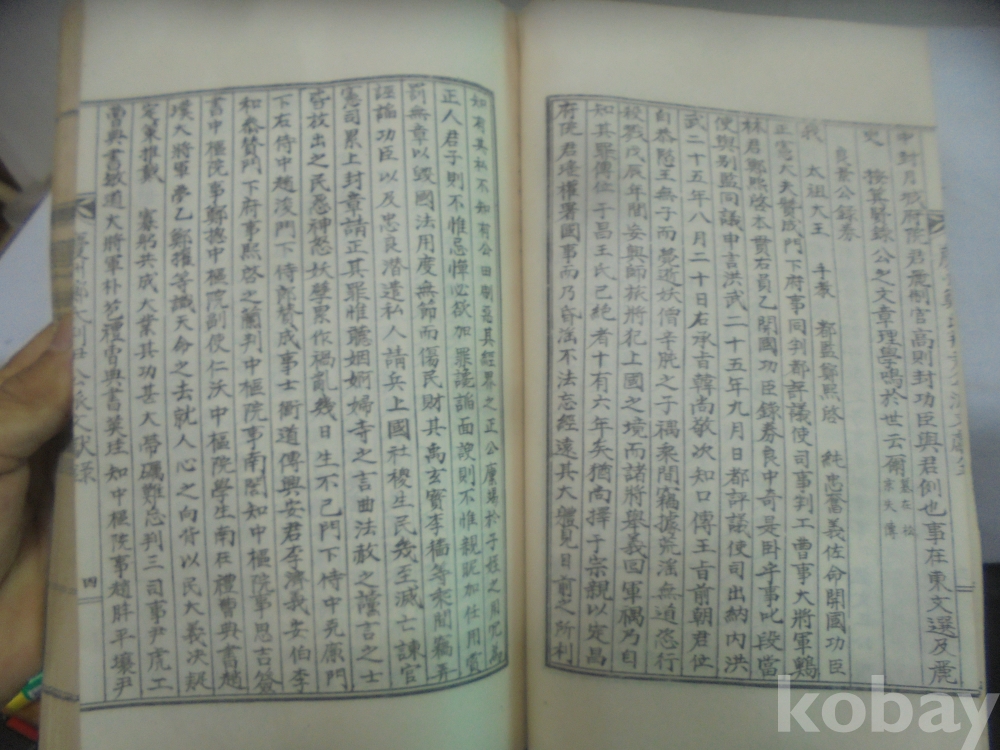 中封月城府院君麗制官高則封功臣與君例也事在東文選及麗
史 按箕賢錄公之文章理學鳴於世云爾墓在松京失傳
良景公錄券
我 太祖大王 手教 都監鄭熙啓 純忠奮義佐命開國功臣
正憲大夫贊成門下府事同判都評議使司事判工曹事大將軍鷄
林君鄭熙啓本貫右員乙開國功臣錄券良中奇是臥乎事比段當
便與別監同議申言洪武二十五年九月日都評議使司出納內洪
武二十五年八月二十日右承旨韓尚敬次知口傳王旨前朝君位
自恭愍王無子而薨逆妖僧辛旽之子禑乘間竊據荒滛無迫恣行
殺戮戊辰年間妄興師旅將犯上國之境而諸將擧義回軍禑乃自
知其罪傳位于昌王氏已絶者十有六年矣猶尚擇于宗親以定昌
府院君瑤權署國事而乃昏滛不法忘經遠其大體見目前之所利
知有其私不知有公田制惡其經界之正公廩
正人君子則不惟忌憚必欲加罪讒諂面諛則不惟親昵加任用賞
罰無章以毁國法用度無節而傷民財其禹玄寶李穡等乘間竊弄
誣謟功臣以及忠良潜遣私人請兵上國社稷生民幾至滅亡諫官
憲司累上封章請正其罪惟聽姻婭婦寺之言曲法赦之讜言之士
皆放出之民怨神怒妖孽累作禍亂幾日生不已門下侍中
下右侍中趙浚門下侍郞贊成事士衡道傳興安君李濟義安伯李
和參贊門下府事熙啓之蘭判中樞院事南誾知中樞院事思吉簽
書中樞院事鄭摠中樞院副使仁沃中樞院學生南在禮曹典書趙
璞大將軍蒙乙鄭擢等識天命之去就人心之向背以民大義决疑
定策推戴 寡躬共成大業其功甚大帶礪難忘判三司事尹虎工
曹典書敏道大將軍朴苞禮曹典書英珪知中樞院事趙胖平壤尹
慶州鄭氏判尹公派文献錄
四
kobay